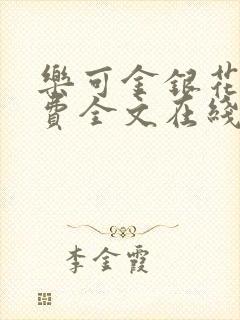 樂可金銀花
費全文在綫
李金霞